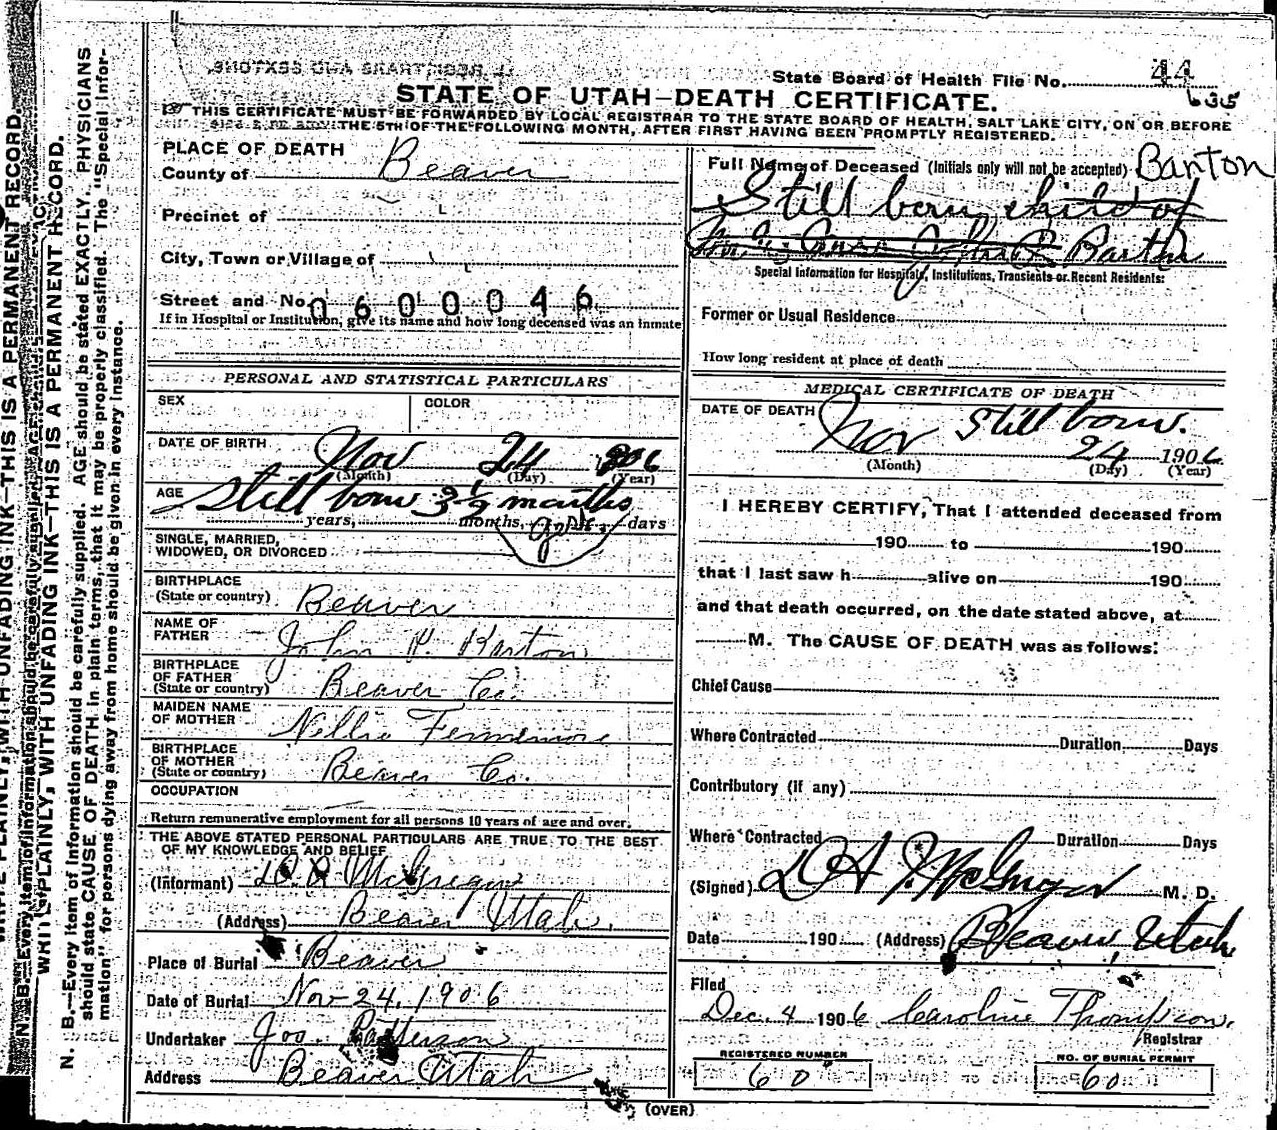 State Board of Health File No. 44
635
STATE OF UTAH—DEATH CERTIFICATE.
THIS CERTIFICATE MUST BE FORWARDED BY LOCAL REGISTRAR TO THE STATE BOARD OF HEALTH, SALT LAKE CITY, ON OR BEFORE
THE 5TH OF THE FOLLOWING MONTH, AFTER FIRST HAVING BEEN PROMPTLY REGISTERED.
PLACE OF DEATH
County of Beaver
Precinct of
City, Town or Village of
Street and No. 0600046
If in Hospital or Institution, give its name and how long deceased was an inmate
Full Name of Deceased (Initials only will not be accepted) Banton
Still born child of
Special Information for Hospitals, Institutions, Transients or Recent Residents:
Former or Usual Residence
How long resident at place of death
PERSONAL AND STATISTICAL PARTICULARS
SEX
COLOR
DATE OF BIRTH Nov 24 6
(Month) (Day) (Year)
AGE Still born 3 1/2 months
years, months, days
SINGLE, MARRIED,
WIDOWED, OR DIVORCED
BIRTHPLACE
(State or country) Beaver
NAME OF
FATHER John Barton
BIRTHPLACE
OF FATHER
(State or country) Beaver Co.
MAIDEN NAME
OF MOTHER Nellie Fennemore
BIRTHPLACE
OF MOTHER
(State or country) Beaver Co.
OCCUPATION
Return remunerative employment for all persons 10 years of age and over.
THE ABOVE STATED PERSONAL PARTICULARS ARE TRUE TO THE BEST
OF MY KNOWLEDGE AND BELIEF
(Informant) McGregor
(Address) Beaver Utah.
Place of Burial Beaver
Date of Burial Nov 24, 1906
Undertaker Joo. Patterson
Address Beaver Utah
MEDICAL CERTIFICATE OF DEATH
DATE OF DEATH Still born.
Nov 24 1906
(Month) (Day) (Year)
I HEREBY CERTIFY, That I attended deceased from
190 to 190
that I last saw h alive on 190
and that death occurred, on the date stated above, at
M. The CAUSE OF DEATH was as follows:
Chief Cause
Where Contracted Duration Days
Contributory (if any)
Where Contracted Duration Days
(Signed) McGregor M. D.
Date 190 (Address) Beaver, Utah
Filed
Dec. 4 1906 Caroline Thompson.
Registrar
REGISTERED NUMBER
60
NO. OF BURIAL PERMIT
60
(OVER)
N. B.—Every item of information should be carefully supplied. AGE should be stated EXACTLY. PHYSICIANS
should state CAUSE OF DEATH in plain terms, that it may be properly classified. The "Special Infor-
mation" for persons dying away from home should be given in every instance.
WRITE PLAINLY, WITH UNFADING INK—THIS IS A PERMANENT RECORD.